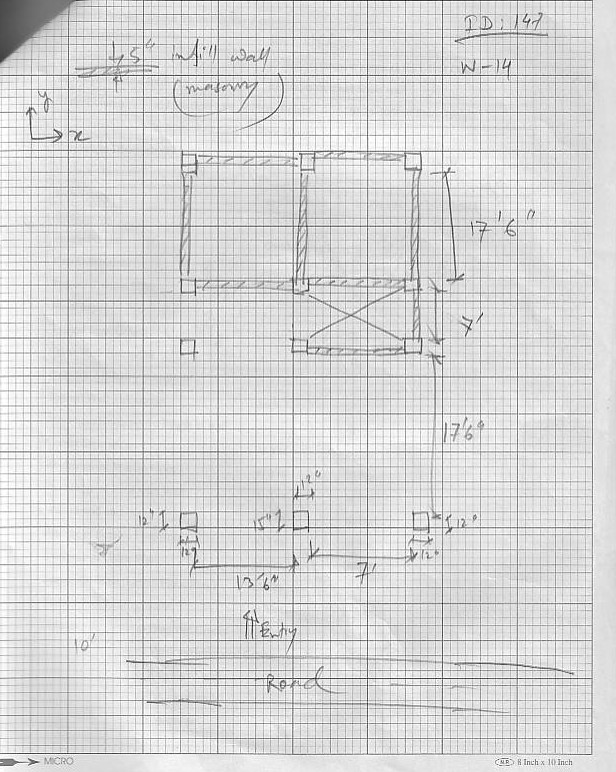 ID: 147
5" infill wall
(masonry)
W-14
y
x
17'6"
7'
17'6"
12"
12"
15"
12"
12"
12"
13'6"
7'
Entry
10'
Road
MICRO
8 Inch x 10 Inch